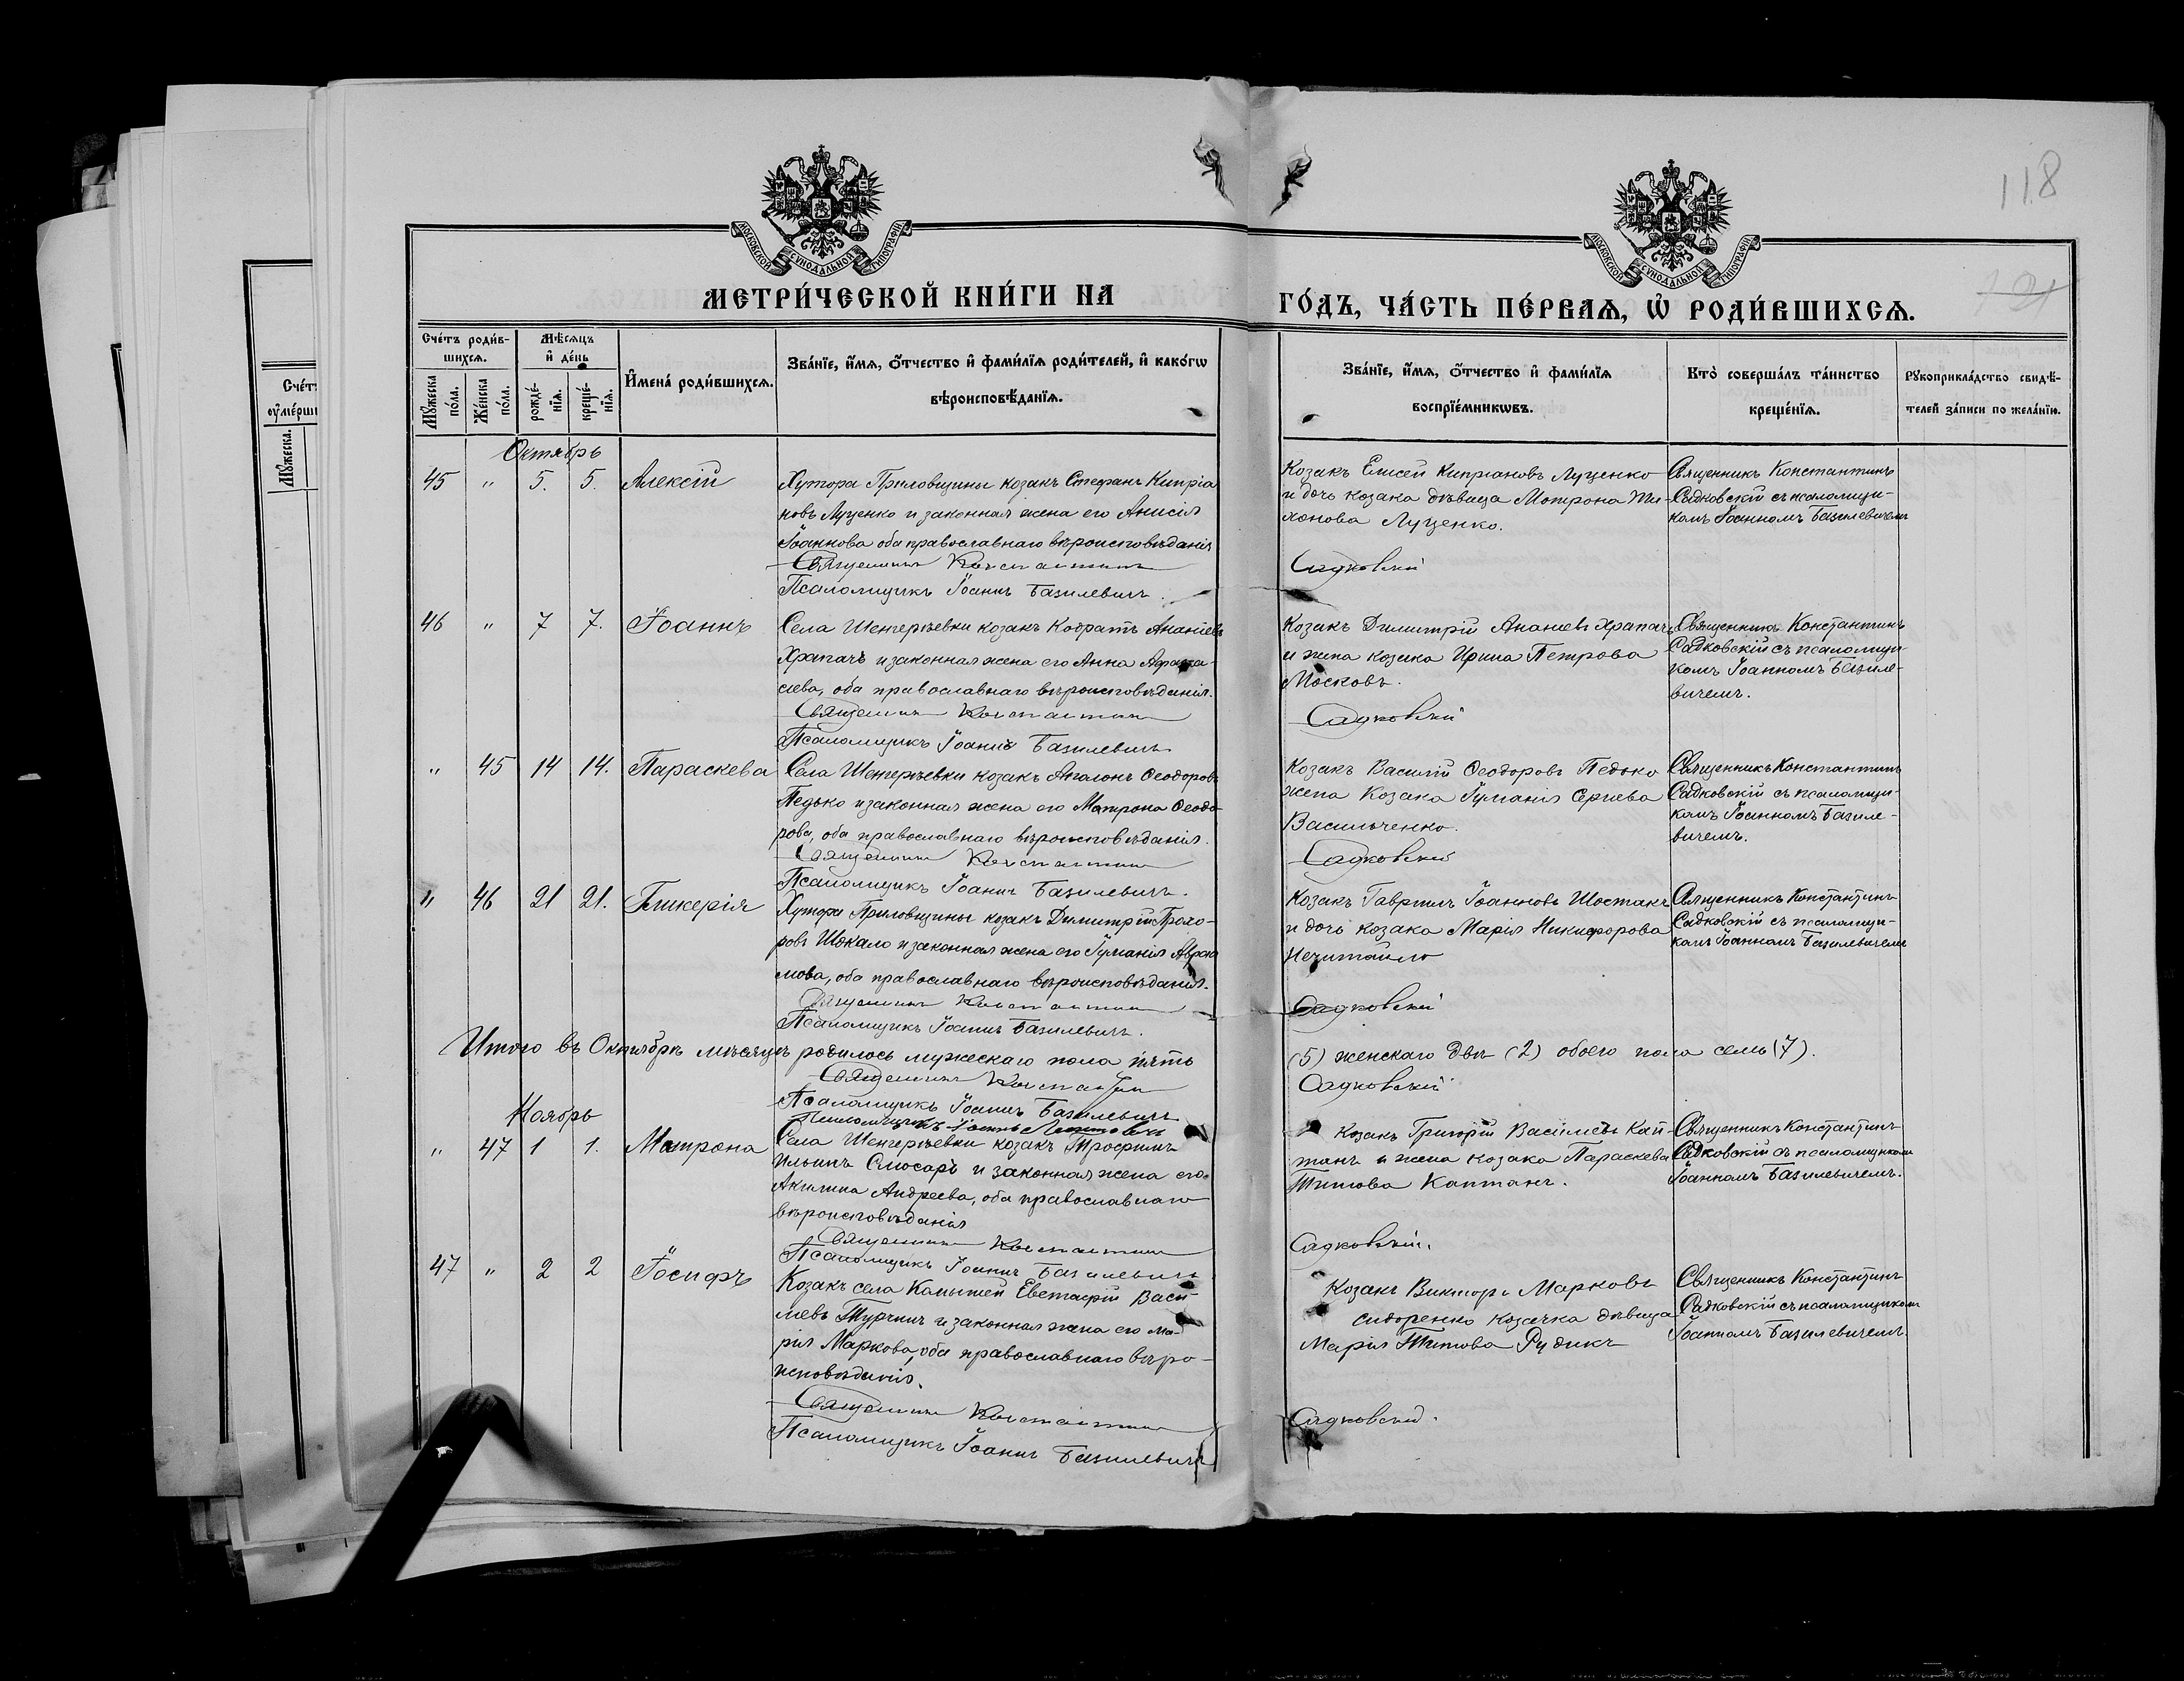 118
МОСКОВСКОЙ СѴНОДАЛЬНОЙ ТИПОГРАФІИ
МОСКОВСКОЙ СѴНОДАЛЬНОЙ ТИПОГРАФІИ
МЕТРИ́ЧЕСКОЙ КНИ́ГИ НА
ГО́ДЪ, ЧА́СТЬ ПЕ́РВАѦ, Ѡ҆ РОДИ́ВШИХСѦ.
Сче́тъ роди́в-
шихсѧ.
Мꙋ́жеска по́ла.
Же́нска по́ла.
Мѣ́сѧцъ
и҆ де́нь
рожде́-
нїѧ.
креще́-
нїѧ.
И҆мена̀ роди́вшихсѧ.
Зва́нїе, и҆́мѧ, ѻ҆́тчество и҆ фами́лїѧ роди́телей, и҆ како́гѡ
вѣроисповѣ́данїѧ.
Зва́нїе, и҆́мѧ, ѻ҆́тчество и҆ фами́лїѧ
воспрїе́мникѡвъ.
Кто̀ соверша́лъ та́инство
креще́нїѧ.
Рꙋкоприкла́дство свидѣ́-
телей за́писи по жела́нїю.
Сче́тъ
Мꙋ́жеска.
Октябрь
45 " 5. 5. Алексій
Хутора Приловщины козакъ Стефанъ Кипріа
новъ Луценко и законная жена его Анисія
Іоаннова оба православнаго вѣроисповѣданія
Священникъ Константинъ
Псаломщикъ Іоаннъ Базилевичъ.
Козакъ Елисей Кипріановъ Луценко
и дочь козака дѣвица Мотрона Ти-
хонова Луценко.
Садковскій
Священникъ Константинъ
Садковскій съ псаломщи-
комъ Іоанномъ Базилевичемъ
46 " 7 7. Іоаннъ
Села Шенгерѣевки козакъ Кодратъ Ананіевъ
Храпачъ и законная жена его Анна Афана-
сіева, оба православнаго вѣроисповѣданія.
Священникъ Константинъ
Псаломщикъ Іоаннъ Базилевичъ
Козакъ Димитрій Ананіевъ Храпачъ
и жена козака Ирина Петрова
Московъ.
Садковскій
Священникъ Константинъ
Садковскій съ псаломщи-
комъ Іоанномъ Базиле-
вичемъ.
" 45 14 14. Параскева
Села Шенгерѣевки козакъ Аполонъ Ѳеодоровъ
Педько и законная жена его Матрона Ѳеодо-
рова, оба православнаго вѣроисповѣданія.
Священникъ Константинъ
Псаломщикъ Іоаннъ Базилевичъ.
Козакъ Василій Ѳеодоровъ Педько
жена Козака Гуманія Сергіева
Васильченко.
Садковскій
Священникъ Константинъ
Садковскій съ псаломщи-
комъ Іоанномъ Базиле-
вичемъ.
" 46 21 21. Гликерія
Хутора Приловщины козакъ Димитрій Прохо-
ровъ Шокало и законная жена его Гуманія Авраа
мова, оба православнаго вѣроисповѣданія.
Священникъ Константинъ
Псаломщикъ Іоаннъ Базилевичъ.
Козакъ Гавріилъ Іоанновъ Шостакъ
и дочь козака Марія Никифорова
Нечитайло
Садковскій
Священникъ Константинъ
Садковскій съ псаломщи-
комъ Іоанномъ Базилевичемъ
Итого въ Октябрѣ мѣсяцѣ родилось мужескаго пола пять
(5) женскаго двѣ (2) обоего пола семь (7).
Священникъ Константинъ
Садковскій
Псаломщикъ Іоаннъ Базилевичъ
Ноябрь
" 47 1 1. Матрона
Села Шенгерѣевки козакъ Трофимъ
Ильинъ Слюсарь и законная жена его
Акилина Андреева, оба православнаго
вѣроисповѣданія
Священникъ Константинъ
Псаломщикъ Іоаннъ Базилевичъ
Козакъ Григорій Васильевъ Кап-
танъ и жена козака Параскева
Титова Каптанъ.
Садковскій.
Священникъ Константинъ
Садковскій съ псаломщикомъ
Іоанномъ Базилевичемъ.
47 " 2 2 Іосифъ
Козакъ села Камышей Евстафій Васи-
льевъ Турчинъ и законная жена его Ма-
рія Маркова, оба православнаго вѣро-
исповѣданія.
Священникъ Константинъ
Псаломщикъ Іоаннъ Базилевичъ
Козакъ Викторъ Марковъ
Сидоренко козачка дѣвица
Марія Титова Рудикъ
Садковскій.
Священникъ Константинъ
Садковскій съ псаломщикомъ
Іоанномъ Базилевичемъ.